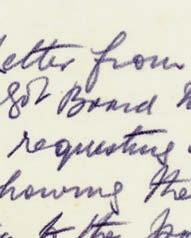 letter from
Board
requesting
howing the
to the